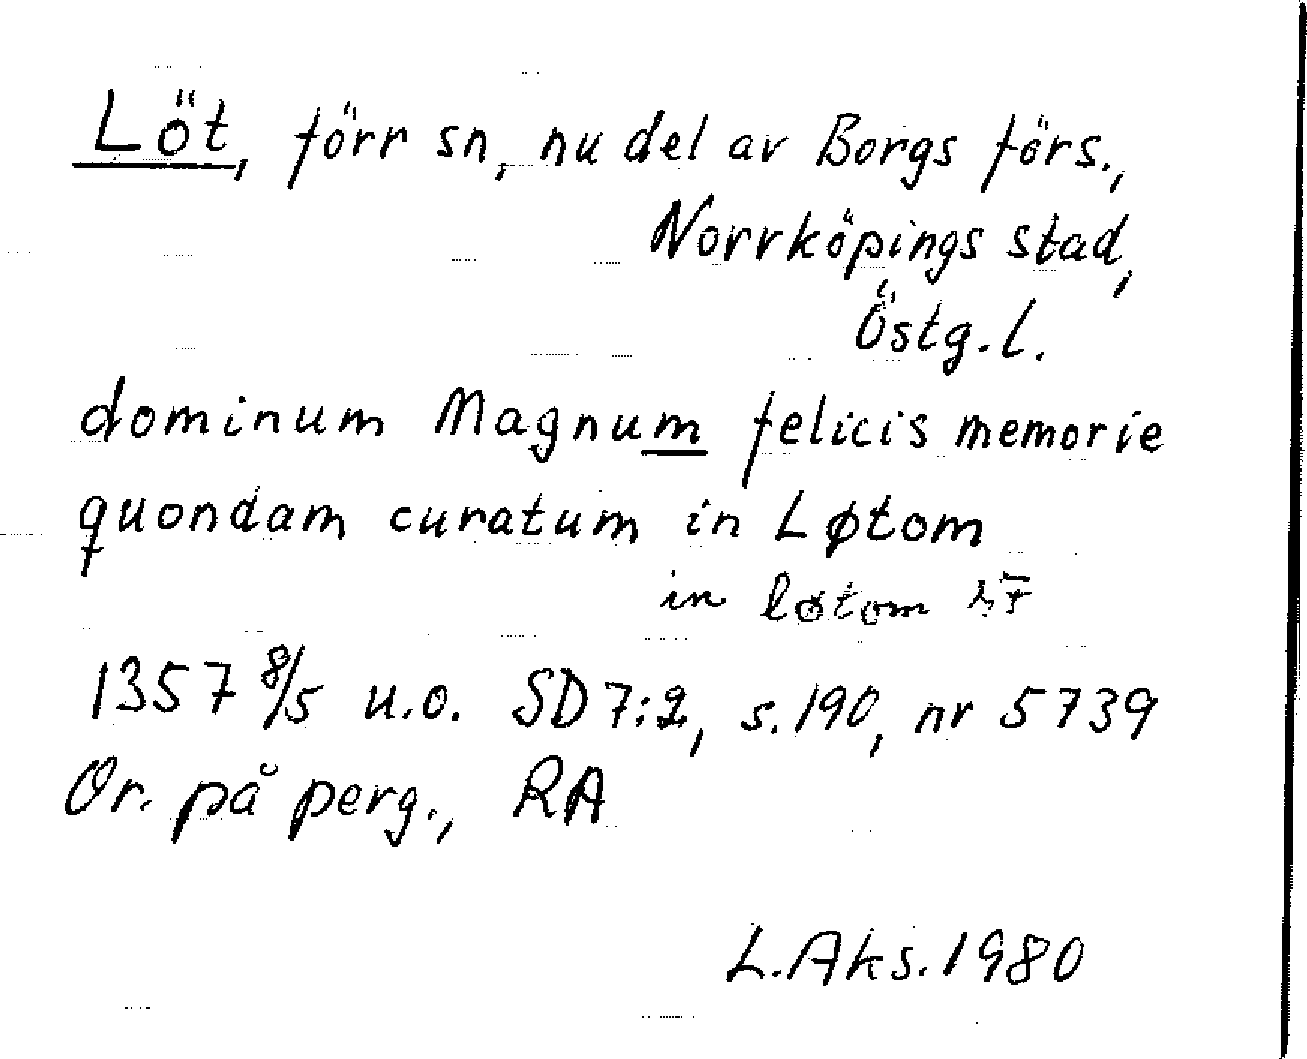 Löt, förr sn, nu del av Borgs förs.,
Norrköpings stad,
Östg.l.
dominum Magnum felicis memorie
quondam curatum in Løtom
in løtom
1357 8/5 u.o. SD 7:2, s.190, nr 5739
Or. på perg., RA
L.Aks.1980